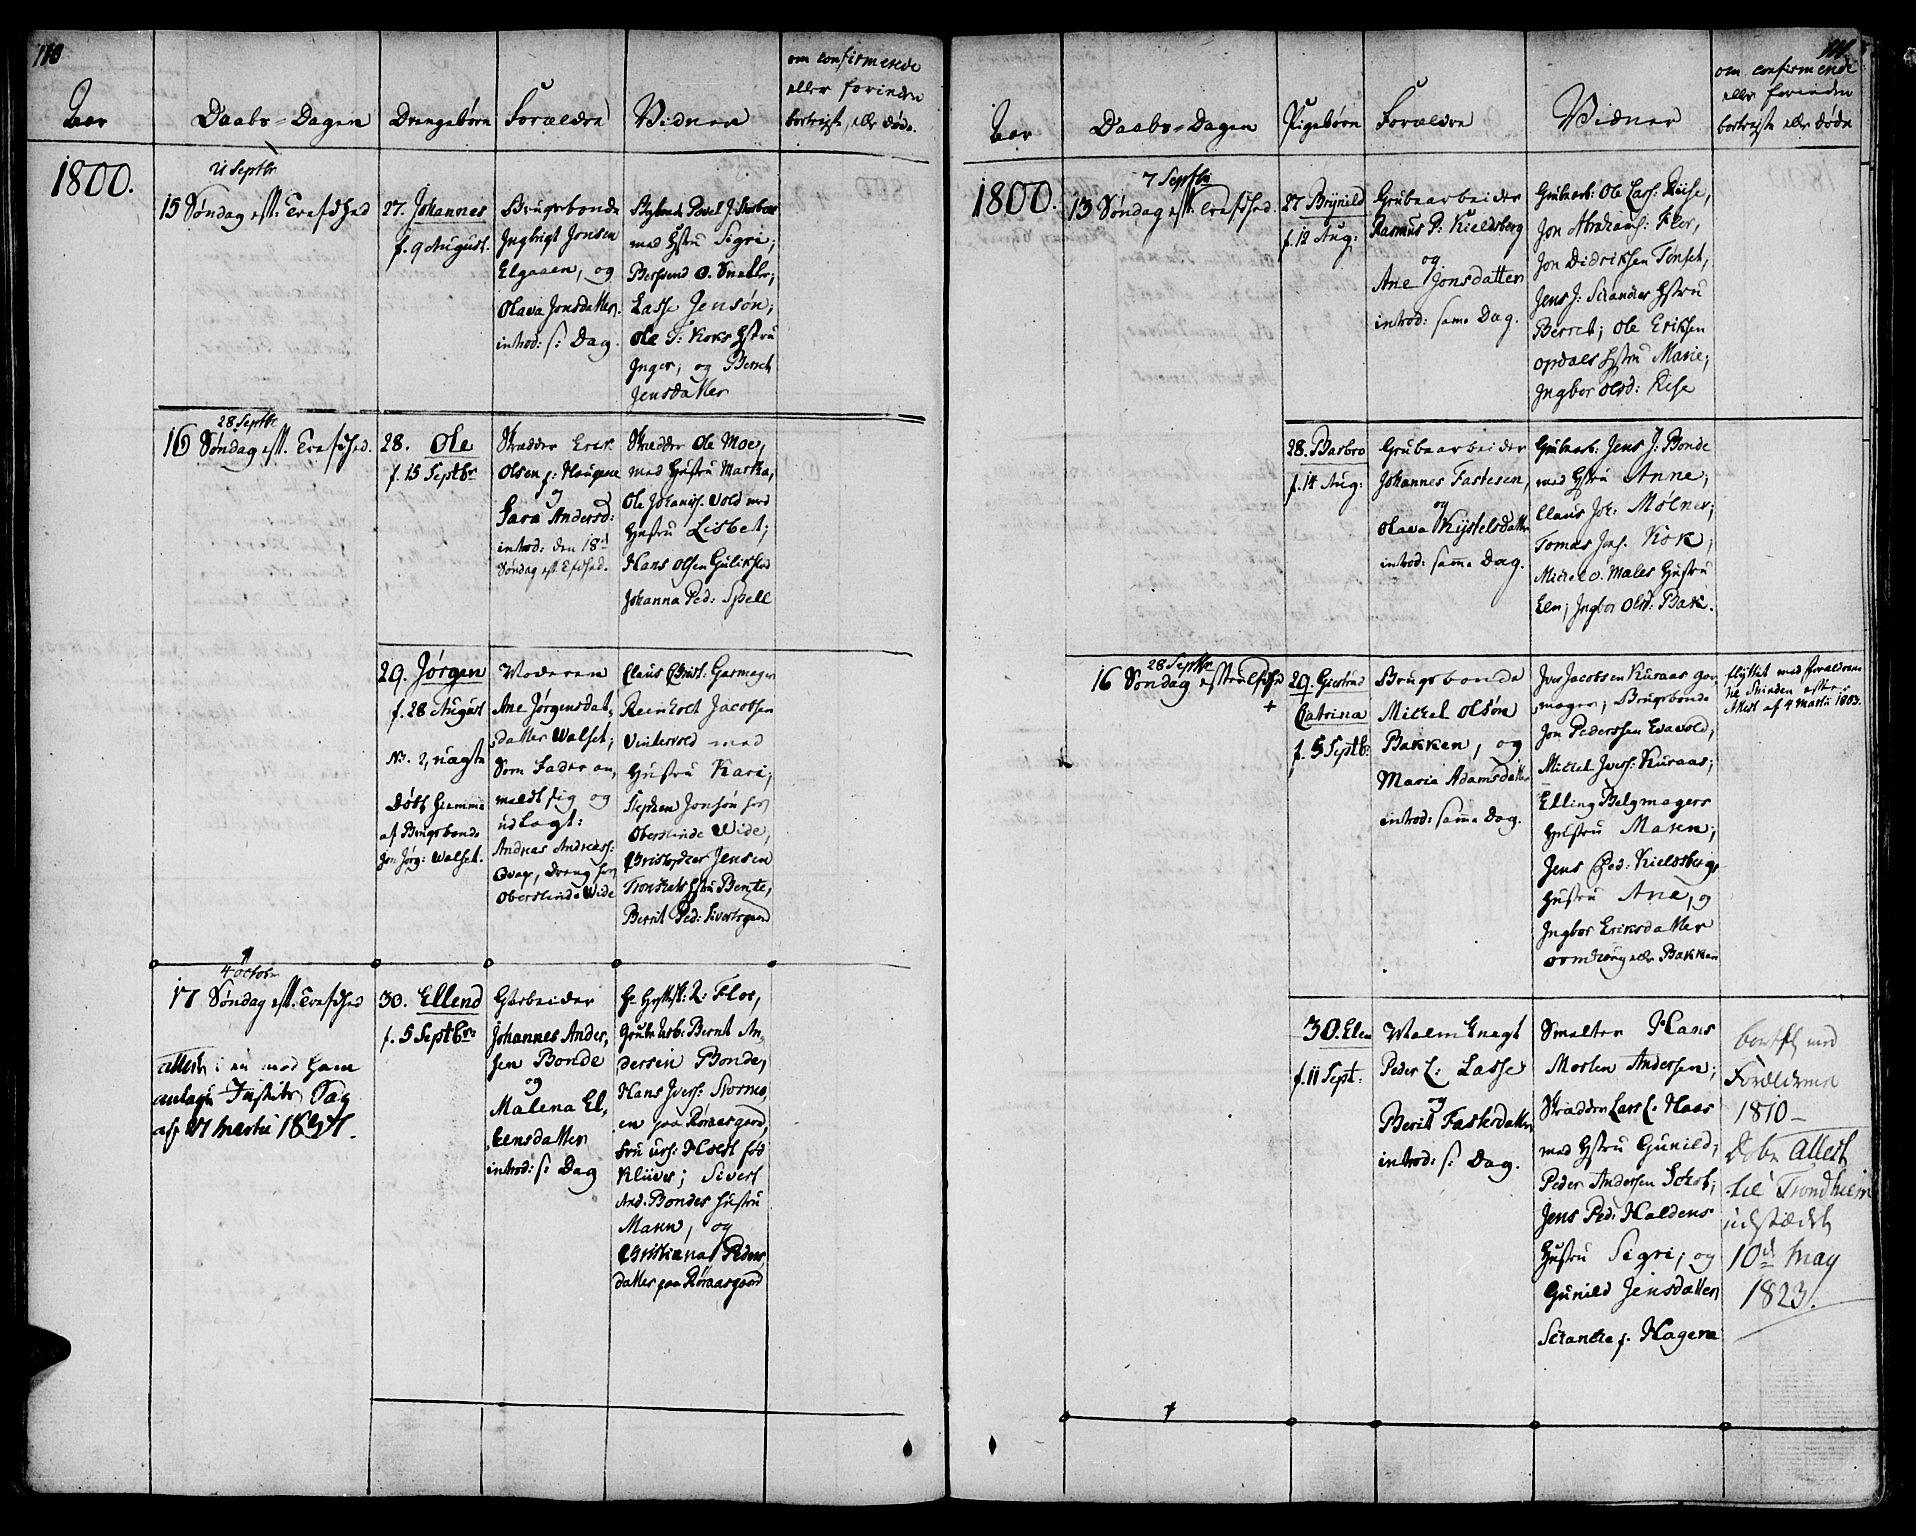 110
Aar
Daabs=Dagen
Drengebørn
Forældre
Vidner
om confirmerede
eller forinden
bortreiste, eller døde.
1800.
21 Septbr
15 Søndag eft: Trefdhed
27. Johannes
f. 9 August.
Brugsbonde
Ingbrigt Jonsen
Elgaaen, og
Olava Jonsdatter.
introd: s: Dag.
Povel J.
med Hstru Sigri;
Lasse Jensøn;
Ole T: Koks Hstru
Inger, og Berret
Jensdatter
28 Septbr
16 Søndag eft. Trefdhed.
28. Ole
f. 15 Septbr
Skrædder Erik
Olsen f: Haugene
og
Sara Andersd:
introd: den 18d
Søndag eft
Skrædder Ole Moe,
med Hustru Marka,
Ole Johanss. Vold med
Hustru Lisbet;
Hans Olsen
Johanna Ped: Spell
29. Jørgen
f. 28 August
No. 2, uægte
Døbt hiemme
af Brugsbonde
Jon Jørg: Walset.
Moderen
Ane Jørgensdat,
datter Walset;
Som Fader an,
meldt sig og
udlagt:
Andreas Andreass:
dreng hos
Oberstinde Wide
Claus Christ: Garmager
Reinholt Jacobsen
Vintervold med
Hustru Kari;
Stephen Jonsøn hos
Oberstinde Wide;
Christopher Jensen
Hstru Bente,
Berrit Ped: Sivertsgaard
4 Octobr
17 Søndag eft. Trefdhed
Attest i en med ham
antagen Justits Sag
af
30. Ellend
f. 5 Septbr:
Garbeider
Johannes Ander,
sen Bonde
og
Malena El,
lensdatter
introd: s: Dag
Hr Hyttsk: L: Flor,
Grub Arb: Bernt An,
dersen Bonde,
Hans Iverss: Stormo,
en paa Røraasgaard,
fru Fød
Klüver; Sivert
And: Bondes Hustru
Maren, og
Christiana Peders,
datter paa Røraasgaard
111.
Aar
Daabs=Dagen
Pigebørn
Forældre
Vidner
om confirmerede
eller forinden
bortreiste eller døde
1800.
7 Septbr
13 Søndag eft: Trefdhed.
27 Brynild
f. 12 Aug:
Grubearbeider
Rasmus P: Kieldsberg
og
Ane Jonsdatter
introd: samme Dag.
Grubearb: Ole Lars: Riise,
Jon Abrahams: Flor,
Jon Didriksen Tønset,
Jens J: Strandes Hstru
Berret; Ole Eriksen
Opdals Hstru Marie;
Ingbor Olsd: Riise
28. Barbro
f. 14 Aug:
Grubearbeider
Johannes Fastesen,
og
Olava Kystelsdatter
introd: samme Dag.
Grubearb: Jens J: Bonde
med Hstru Anne;
Claus Joh: Molner;
Tomas Jens. Kok;
Mikel O. Males Hustru
Elen; Ingbor Olsd: Bak.
28 Septbr
16 Søndag
29. Giertrud
Catrina
f. 5 Septbr
Brugsbonde
Mikkel Olsøn
Bakken, og
Maria Adamsdatter
introd: samme Dag.
Iver Jacobsen Kuraas gar,
mager; Brugsbonde
Jon Pederssen Evavold,
Mikkel Iverss: Kuraas;
Elling Belgmagers
Hustru Maren;
Jens Ped: Kieldsbergs
Hustru Ane, og
Ingbor Eriksdatter
eller Bakken
flyttet med forældrene
til Tronden efter
Attest af 4 Martii 1803.
30. Elen
f. 11 Sept:
Malmknegt
Peder L: Lasse
og
Berit Fastesdatter
introd: s: Dag.
Smelter Hans
Morten Andersen;
Skrædder Lars L. Haas
med Hstru Gunild;
Peder Andersen
Jens Ped: Haldens
Hustru Sigri; og
Gunild Jensdatter
f. Hagene
bortfl med
Forældrene
1810 –
Dbr Attest
til Trondhiem
udstædet
10d May
1823.